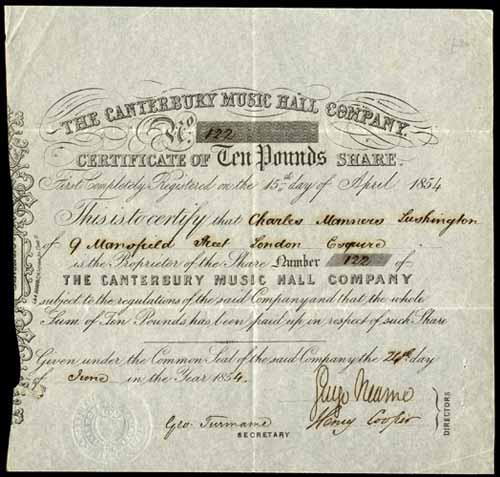 THE CANTERBURY MUSIC HALL COMPANY.
No. 122
CERTIFICATE OF Ten Pounds SHARE.
First completely Registered on the 15th day of April 1854
This is to certify that Charles Manners Lushington
of 9 Mansfield Street London Esquire
is the Proprietor of the Share Number 122 of
THE CANTERBURY MUSIC HALL COMPANY
subject to the regulations of the said Company and that the whole
Sum of Ten Pounds has been paid up in respect of such Share
Given under the Common Seal of the said Company the 24th day
of June in the Year 1854.
Neame
Henry Cooper
DIRECTORS
Geo.
SECRETARY